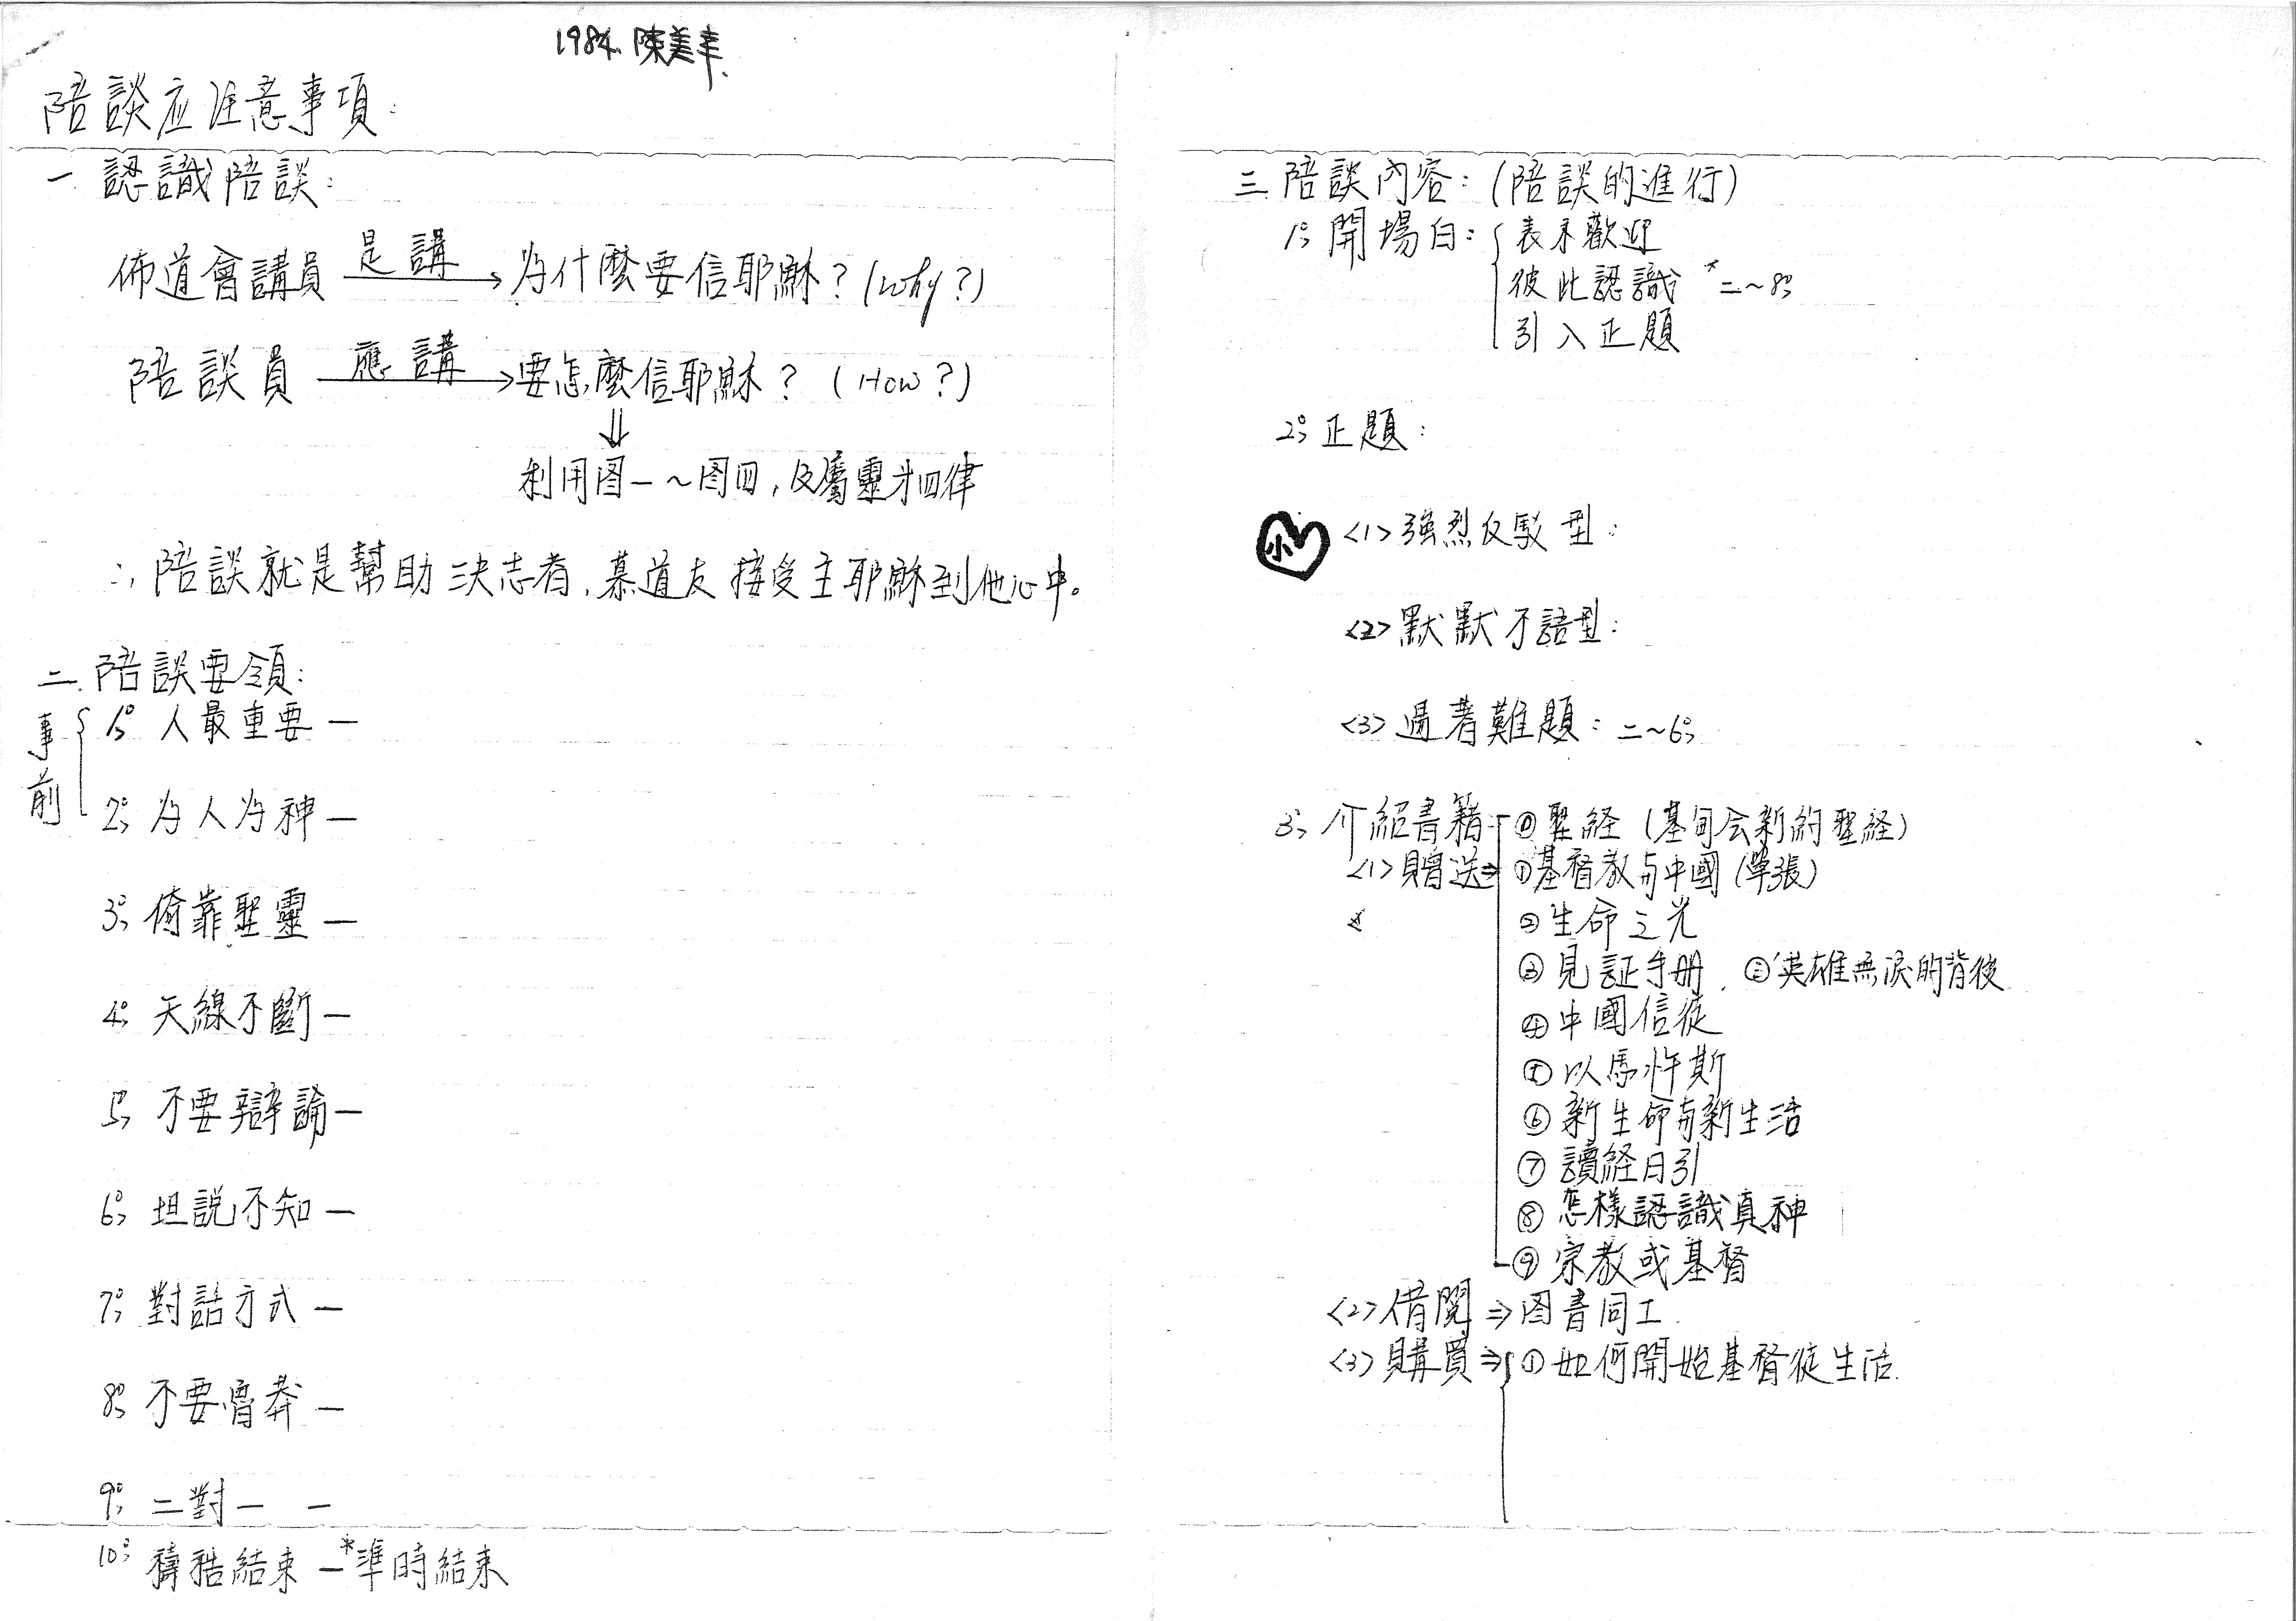 1984. 陳美幸.
陪談应注意事項:
一 認識陪談:
佈道會講員 是講→ 为什麼要信耶穌? (Why?)
陪談員 應講→ 要怎麼信耶穌? (How?)
⇓
利用图一~图四, 及屬靈四律
∴ 陪談就是幫助決志者、慕道友接受主耶穌到他心中。
二. 陪談要領:
事前
1° 人最重要 —
2° 为人为神 —
3° 倚靠聖靈 —
4° 天線不斷 —
5° 不要辯論 —
6° 坦説不知 —
7° 對話方式 —
8° 不要魯莽 —
9° 二對一 —
10° 禱告結束 — *準時結束
三 陪談內容: (陪談的進行)
1° 開場白: 表示歡迎
彼此認識 *二~8°
引入正題
2° 正題:
小
<1> 強烈反駁型:
<2> 默默不語型:
<3> 遇著難題: 二~6°
3° 介紹書籍 ⓪ 聖経 (基甸会新約聖経)
<1> 贈送⇒ ① 基督教与中國 (單張)
② 生命之光
③ 見証手册. ③ 英雄無淚的背後
④ 中國信徒
⑤ 以馬忤斯
⑥ 新生命与新生活
⑦ 讀経日引
⑧ 怎樣認識真神
⑨ 宗教或基督
<2> 借閱 ⇒ 图書同工
<3> 購買 ⇒ ① 如何開始基督徒生活.